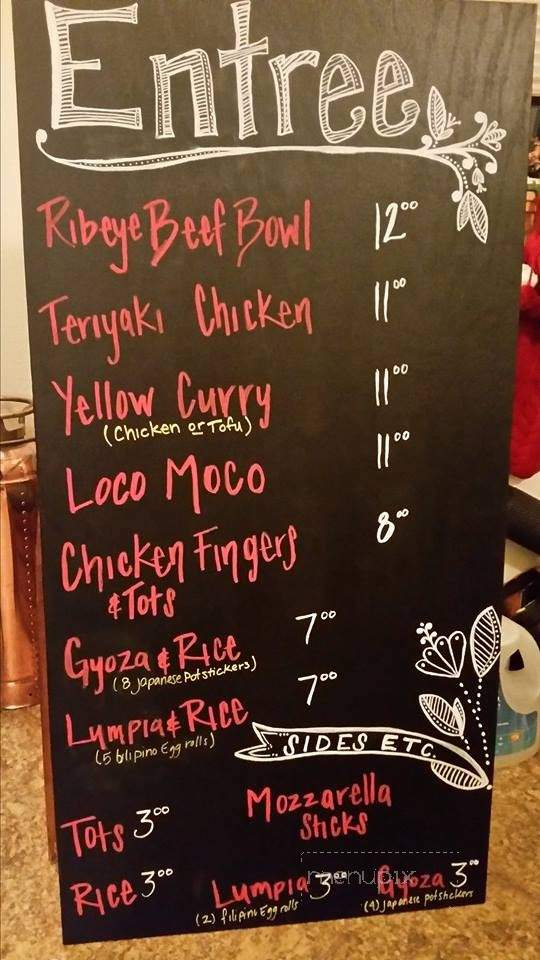 Entree
Ribeye Beef Bowl 12.00
Teriyaki Chicken 11.00
Yellow Curry 11.00
(Chicken or Tofu)
Loco Moco 11.00
Chicken Fingers 8.00
& Tots
Gyoza & Rice 7.00
(8 Japanese Potstickers)
Lumpia & Rice 7.00
(5 filipino Egg rolls)
SIDES ETC.
Mozzarella
Sticks
Tots 3.00
Rice 3.00 Lumpia 3.00 Gyoza 3.00
(2) filipino Egg rolls (4) Japanese potstickers
menupix